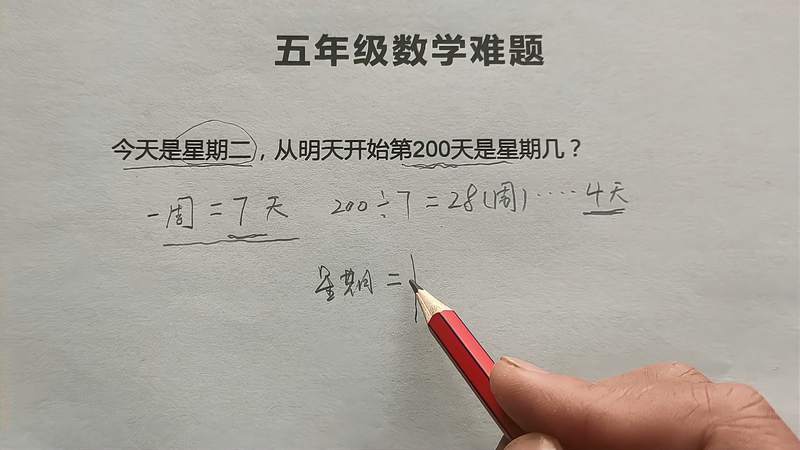 五年级数学难题
今天是星期二，从明天开始第200天是星期几？
一周=7天 200÷7=28(周)····4天
星期二